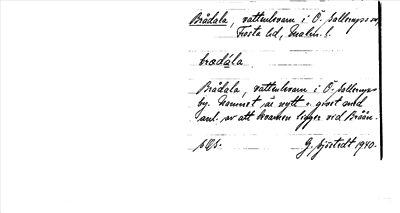 Brådala, vattenkvarn i Ö. Sallerups sn,
Frosta hd, Malm. l.
brådála
Brådala, vattenkvarn i Ö. Sallerups
by. Namnet är nytt o. givet med
anl. av att kvarnen ligger vid Bråån.
G. Sjöstedt 1940.